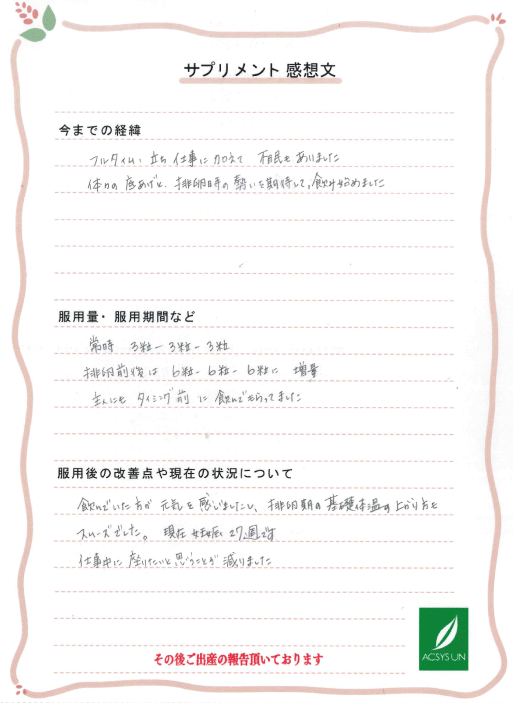 サプリメント 感想文
今までの経緯
フルタイム、立ち仕事に加えて 不眠もありました
体の底あげと、排卵時の勢いを期待して、飲み始めました
服用量・服用期間など
常時 3粒-3粒-3粒
排卵前後は 6粒-6粒-6粒に 増量
主人にも タイミング前に 飲んでもらってました
服用後の改善点や現在の状況について
飲んでいた方が 元気を感じましたし、排卵期の基礎体温の上がり方も
スムーズでした。 現在 妊娠 27週です
仕事中に 座りたいと思うことが 減りました
その後ご出産の報告頂いております
ACSYS UN